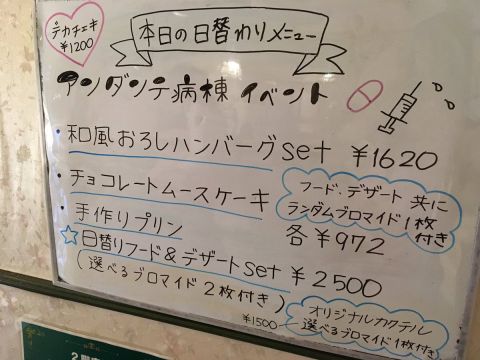 デカチェキ
¥1200
本日の日替わりメニュー
アンダンテ病棟 イベント
・和風おろしハンバーグset ¥1620
・チョコレートムースケーキ
フード、デザート 共に
ランダムブロマイド1枚
付き
・手作りプリン 各¥972
☆日替りフード&デザートset ¥2500
(選べるブロマイド2枚付き)
オリジナルカクテル
¥1500 選べるブロマイド1枚付き
2階